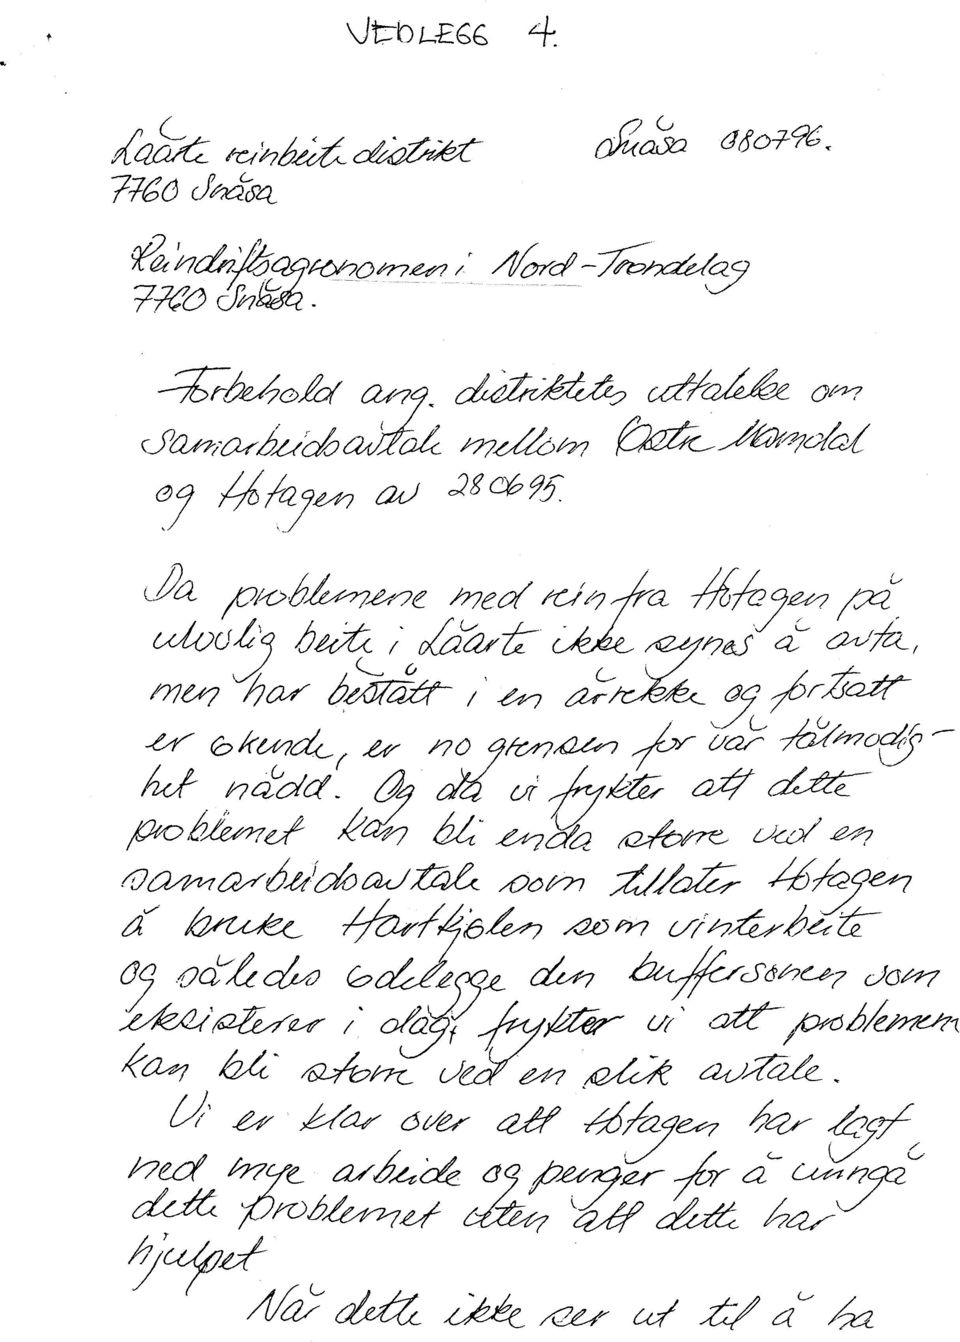 VEDLEGG 4.
Låarte reinbeite distrikt Snåsa 080796.
7760 Snåsa
Reindriftsagronomen i Nord-Trøndelag
7760 Snåsa.
Forbehold ang. distriktets uttalelse om
samarbeidsavtale mellom Østre Namdal
og Hotagen av 280695.
Da problemene med rein fra Hotagen på
ulovlig beite i Låarte ikke synes å avta,
men har bestått i en årrekke og fortsatt
er økende, er no grensen for vår tålmodig-
het nådd. Og da vi frykter att dette
problemet kan bli enda større ved en
samarbeidsavtale som tillater Hotagen
å bruke Hartkjølen som vinterbeite
og således ødelegge den buffersonen som
eksisterer i dag, frykter vi att problemene
kan bli større ved en slik avtale.
Vi er klar over att Hotagen har lagt
ned mye arbeide og penger for å unngå
dette problemet uten att dette har
hjulpet
Når dette ikke ser ut til å ha